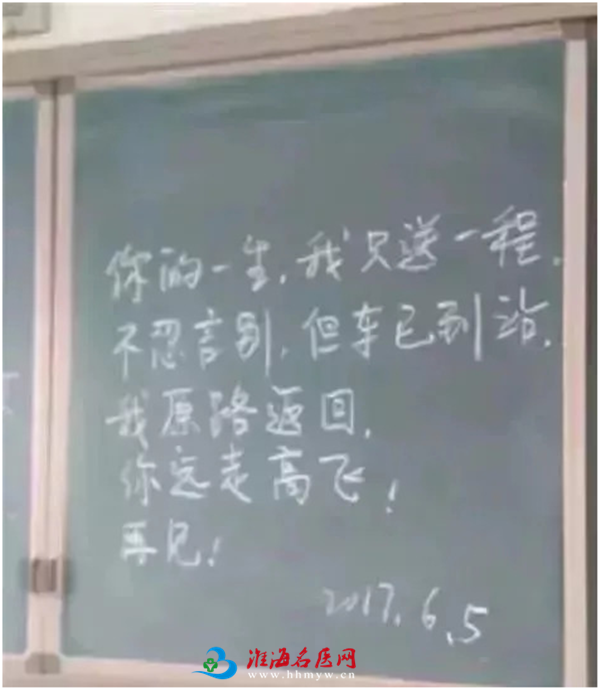 你的一生,我只送一程.
不忍言别,但车已到站.
我原路返回,
你远走高飞!
再见!
2017.6.5
淮海名医网
www.hhmyw.cn